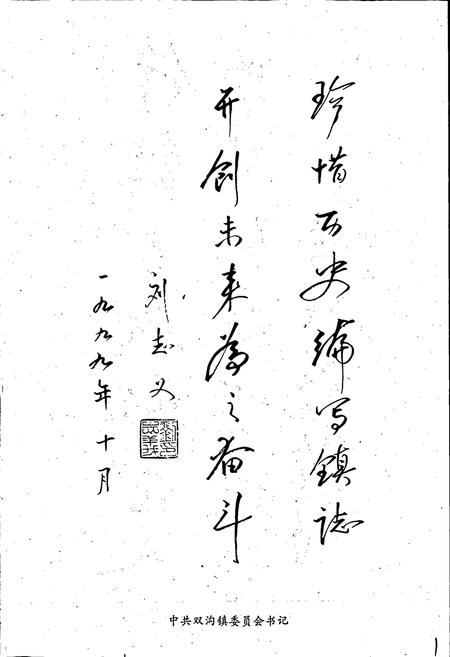 珍惜历史编写镇誌
开创未来为之奋斗
刘志义
一九九九年十月
中共双沟镇委员会书记
1